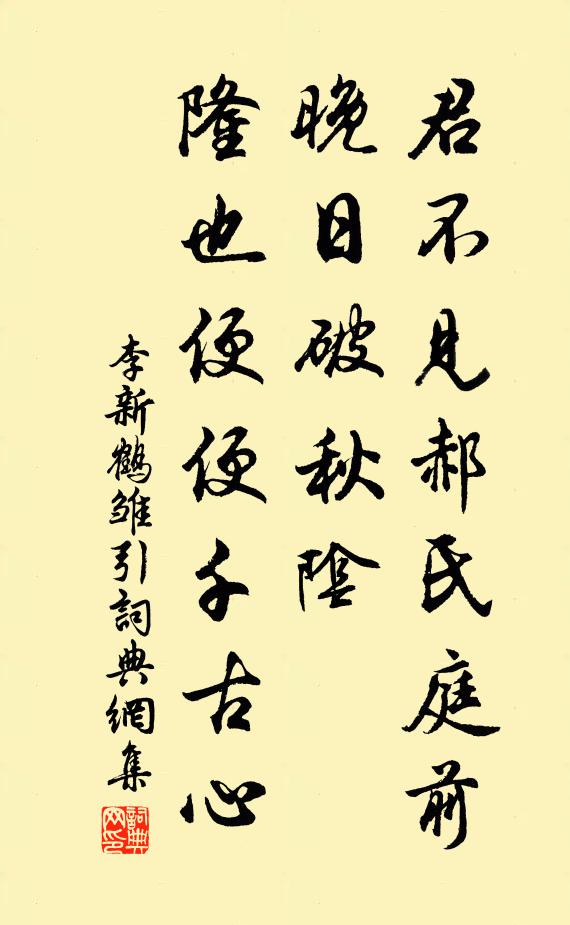 君不見郝氏庭前
晚日破秋陰
隆也便便千古心
李新鶴雏引詞典網集
詞典网印